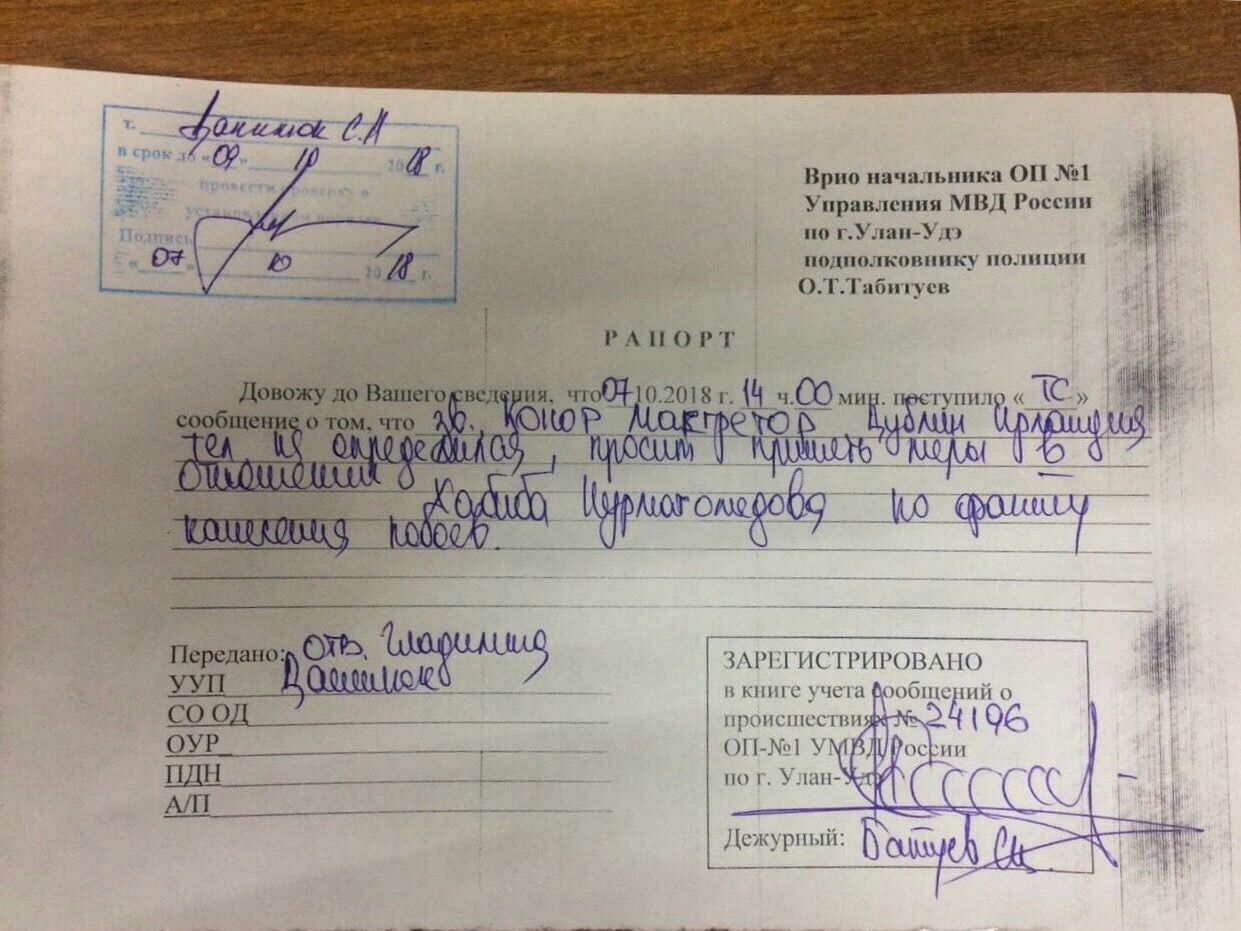 т. Данилюк С.А
в срок до «09» 10 2018 г.
провести проверку и
Подпись
«07» 10 2018 г.
Врио начальника ОП №1
Управления МВД России
по г.Улан-Удэ
подполковнику полиции
О.Т.Табитуев
РАПОРТ
Довожу до Вашего сведения, что 07 10.2018 г. 14 ч. 00 мин. поступило « ТС »
сообщение о том, что зв. Конор Макгрегор Дублин Ирландия
тел не определился, просит принять меры в
отношении Хабиба Нурмагомедова по факту
нанесения побоев.
Передано: отв.
УУП Данилюк
СО ОД
ОУР
ПДН
А/П
ЗАРЕГИСТРИРОВАНО
в книге учета сообщений о
происшествиях № 24196
ОП-№1 УМВД России
по г. Улан-Удэ
Дежурный: Батуев